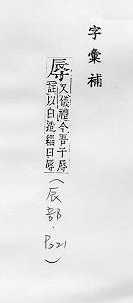 字彙補
辱
又儀禮今吾子辱
註以白造緇曰辱
(辰部.P221)